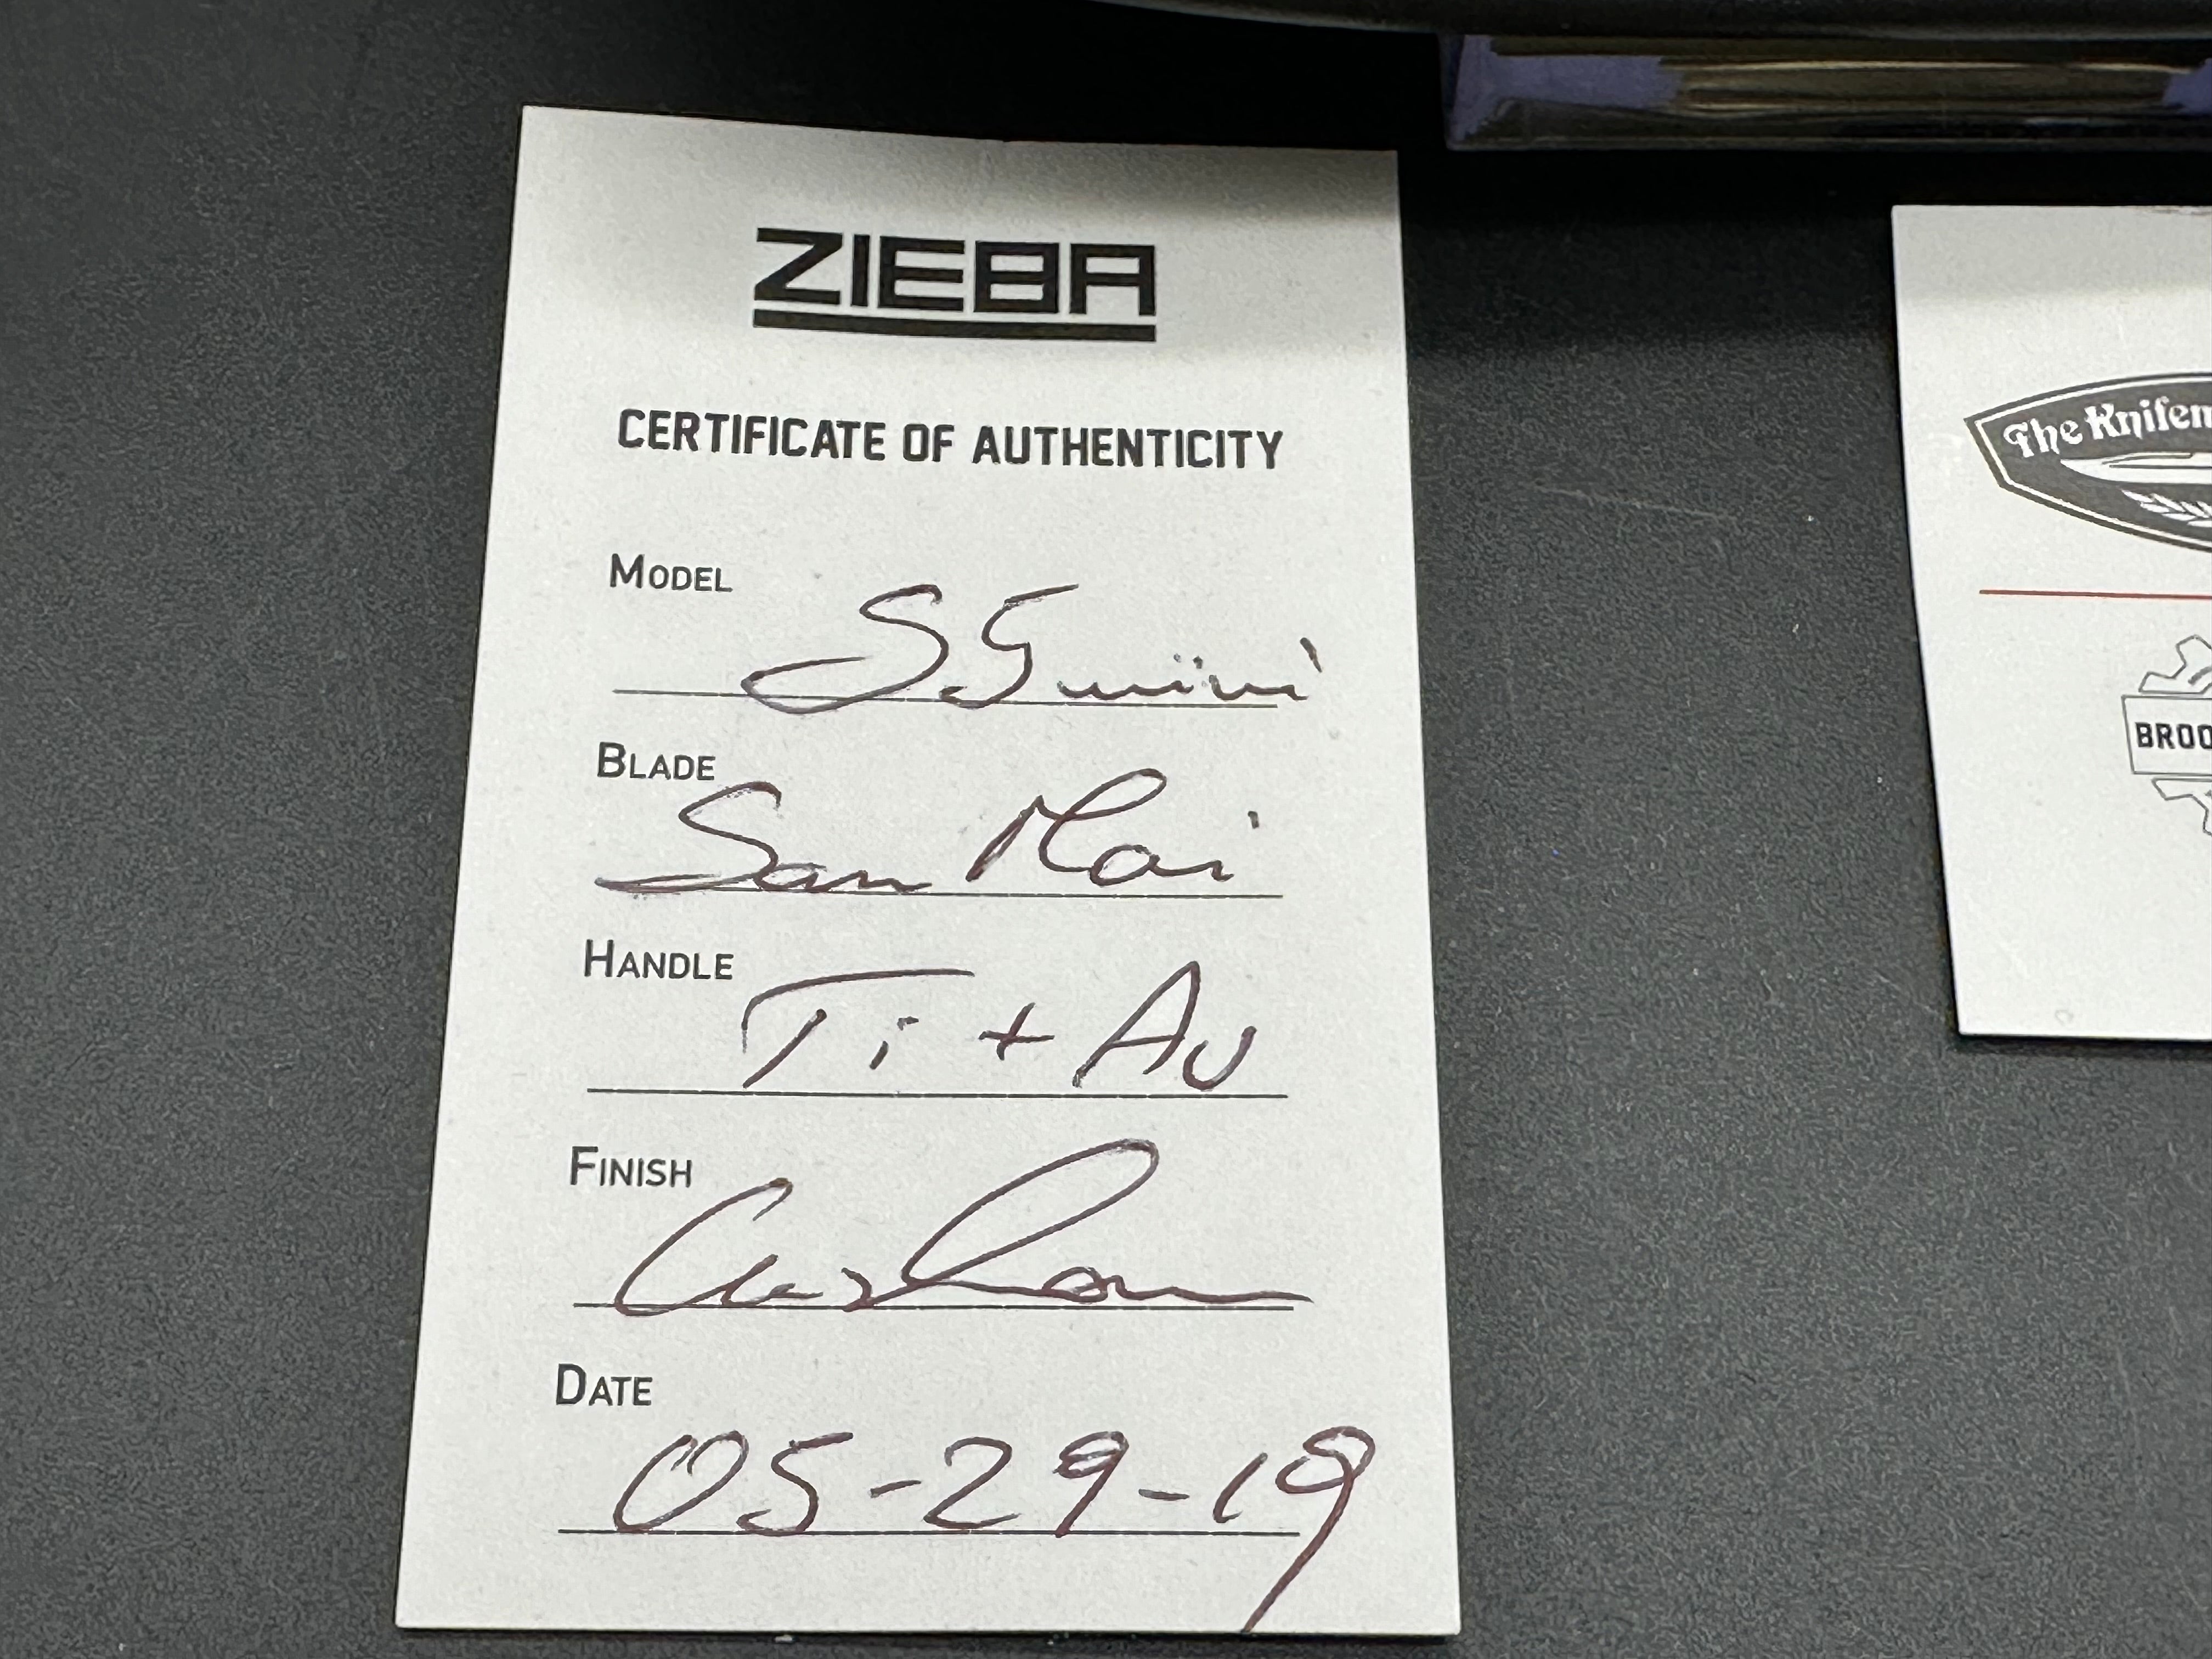 ZIEBA
CERTIFICATE OF AUTHENTICITY
MODEL
S5 mini
BLADE
San Mai
HANDLE
Ti + Au
FINISH
DATE
05-29-19
The Knifem
BROO